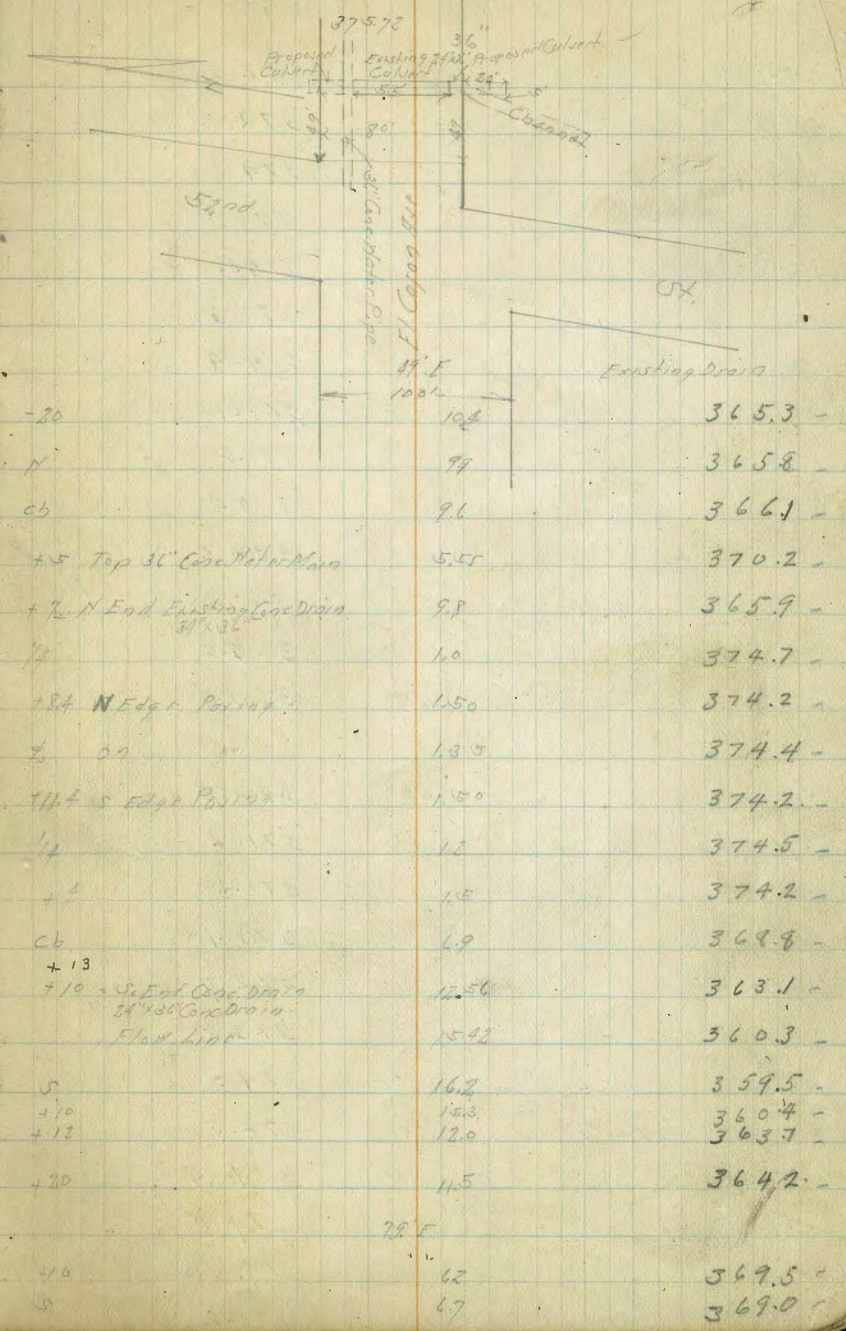 375.72
36"
Proposed Culvert Existing 24"x36" Culvert Proposed Culvert
55 24' 5'
Channel
80'
52nd.
36" Conc Water Pipe
El Cajon Ave
St.
49' E Existing Drain
100'
-20 10.4 365.3 -
N 9.9 365.8 -
cb 9.6 366.1 -
+5 Top 36" Conc. Water Main 5.55 370.2 -
+2 N End Existing Conc Drain 9.8 365.9 -
24" x 36"
1/4 1.0 374.7 -
+8.4 N Edge Paving 1.50 374.2 -
on " 1.35 374.4 -
+11.4 S Edge Paving 1.50 374.2. -
1/4 1.2 374.5 -
1.5 374.2 -
cb 6.9 368.8 -
+13
+10 = So. End Conc. Drain 12.56 363.1 -
24" x 36" Conc Drain
Flow Line 15.42 360.3 -
S 16.2 359.5 -
+10 15.3 360.4 -
+12 12.0 363.7 -
+20 11.5 364.2. -
79' E
-10 6.2 369.5 -
S 6.7 369.0 -